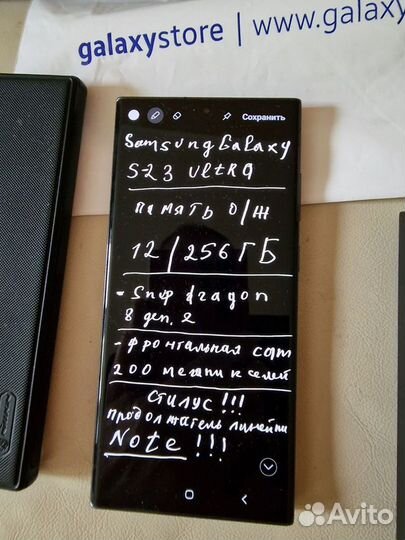 galaxystore | www.galax
Сохранить
Samsung Galaxy
S-23 Ultra
память О/Ж
12/256 ГБ
- Snap dragon
8 ген. 2
- фронтальная cam
200 мегапикселей
Стилус!!!
продолжатель линейки
Note!!!
Avito